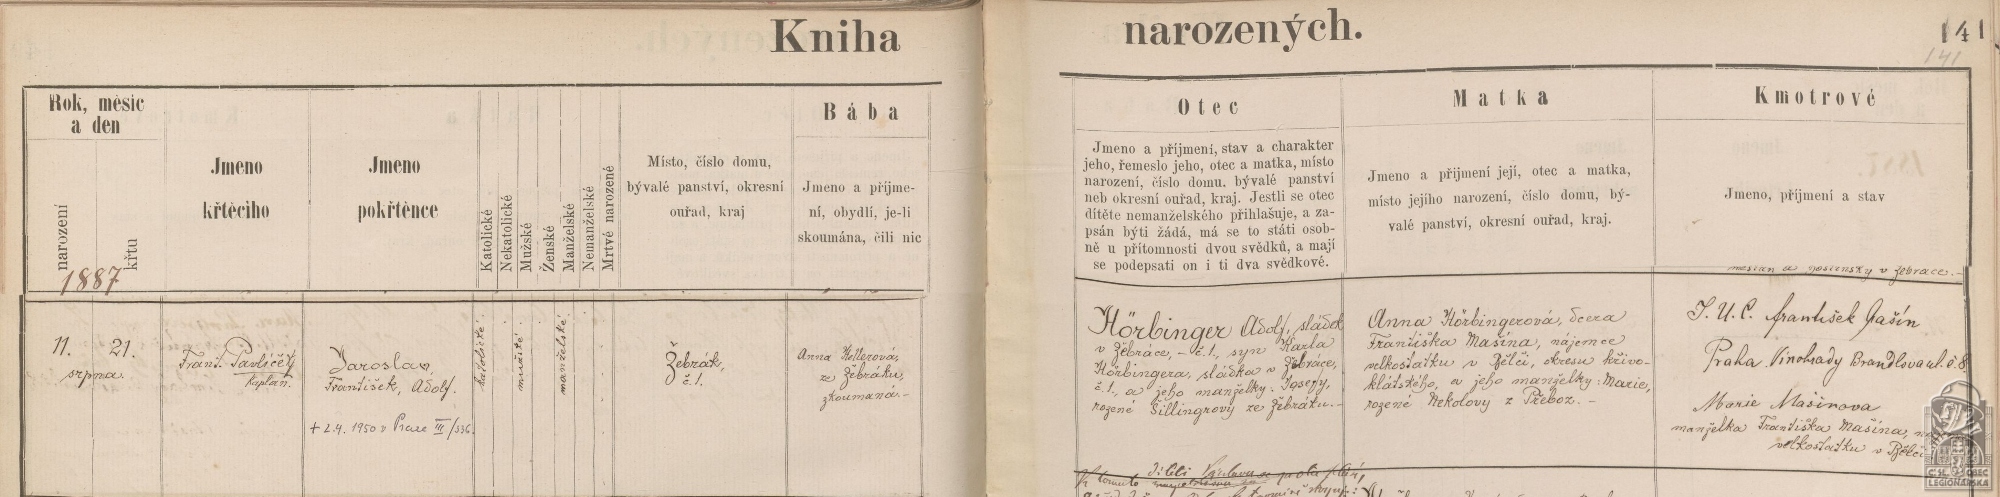 Kniha
narozených.
141
141
Rok, měsíc
a den
narození
křtu
1887
Jmeno
křtěcího
Jmeno
pokřtěnce
Katolické
Nekatolické
Mužské
Ženské
Manželské
Nemanželské
Mrtvé narozené
Místo, číslo domu,
bývalé panství, okresní
ouřad, kraj
Bába
Jmeno a příjme-
ní, obydlí, je-li
skoumána, čili nic
Otec
Jmeno a příjmení, stav a charakter
jeho, řemeslo jeho, otec a matka, místo
narození, číslo domu. bývalé panství
neb okresní ouřad, kraj. Jestli se otec
dítěte nemanželského přihlašuje, a za-
psán býti žádá, má se to státi osob-
ně u přítomnosti dvou svědků, a mají
se podepsati on i ti dva svědkové.
Matka
Jmeno a příjmení její, otec a matka,
místo jejího narození, číslo domu, bý-
valé panství, okresní ouřad, kraj.
Kmotrové
Jmeno, příjmení a stav
měšťan a hostinský v Žebráce.
11. 21.
srpna.
Frant. Pavlíček
kaplan.
Jaroslav,
František, Adolf.
+ 2.4. 1950 v Praze III/536.
katolické.
mužské.
manželské.
Žebrák,
č. 1.
Anna Kellerová,
ze Žebráku,
zkoumaná.-
Hörbinger Adolf, sládek
v Žebráce, - č. 1., syn Karla
Hörbingera, sládka v Žebráce,
č. 1., a jeho manželky Josefy,
rozené Šillingrovy ze Žebráku.-
Anna Hörbingerová, dcera
Františka Mašína, nájemce
velkostatku v Bělči, okresu křivo-
klátského, a jeho manželky Marie,
rozené Nekolovy z Přeboz. -
J. U. C. František Gašín
Praha Vinohrady Brandlova ul. č. 8.
Marie Mašínova
manželka Františka Mašína,
velkostatku v Bělči
K tomuto
ČS. OBEC
LEGIONÁŘSKÁ